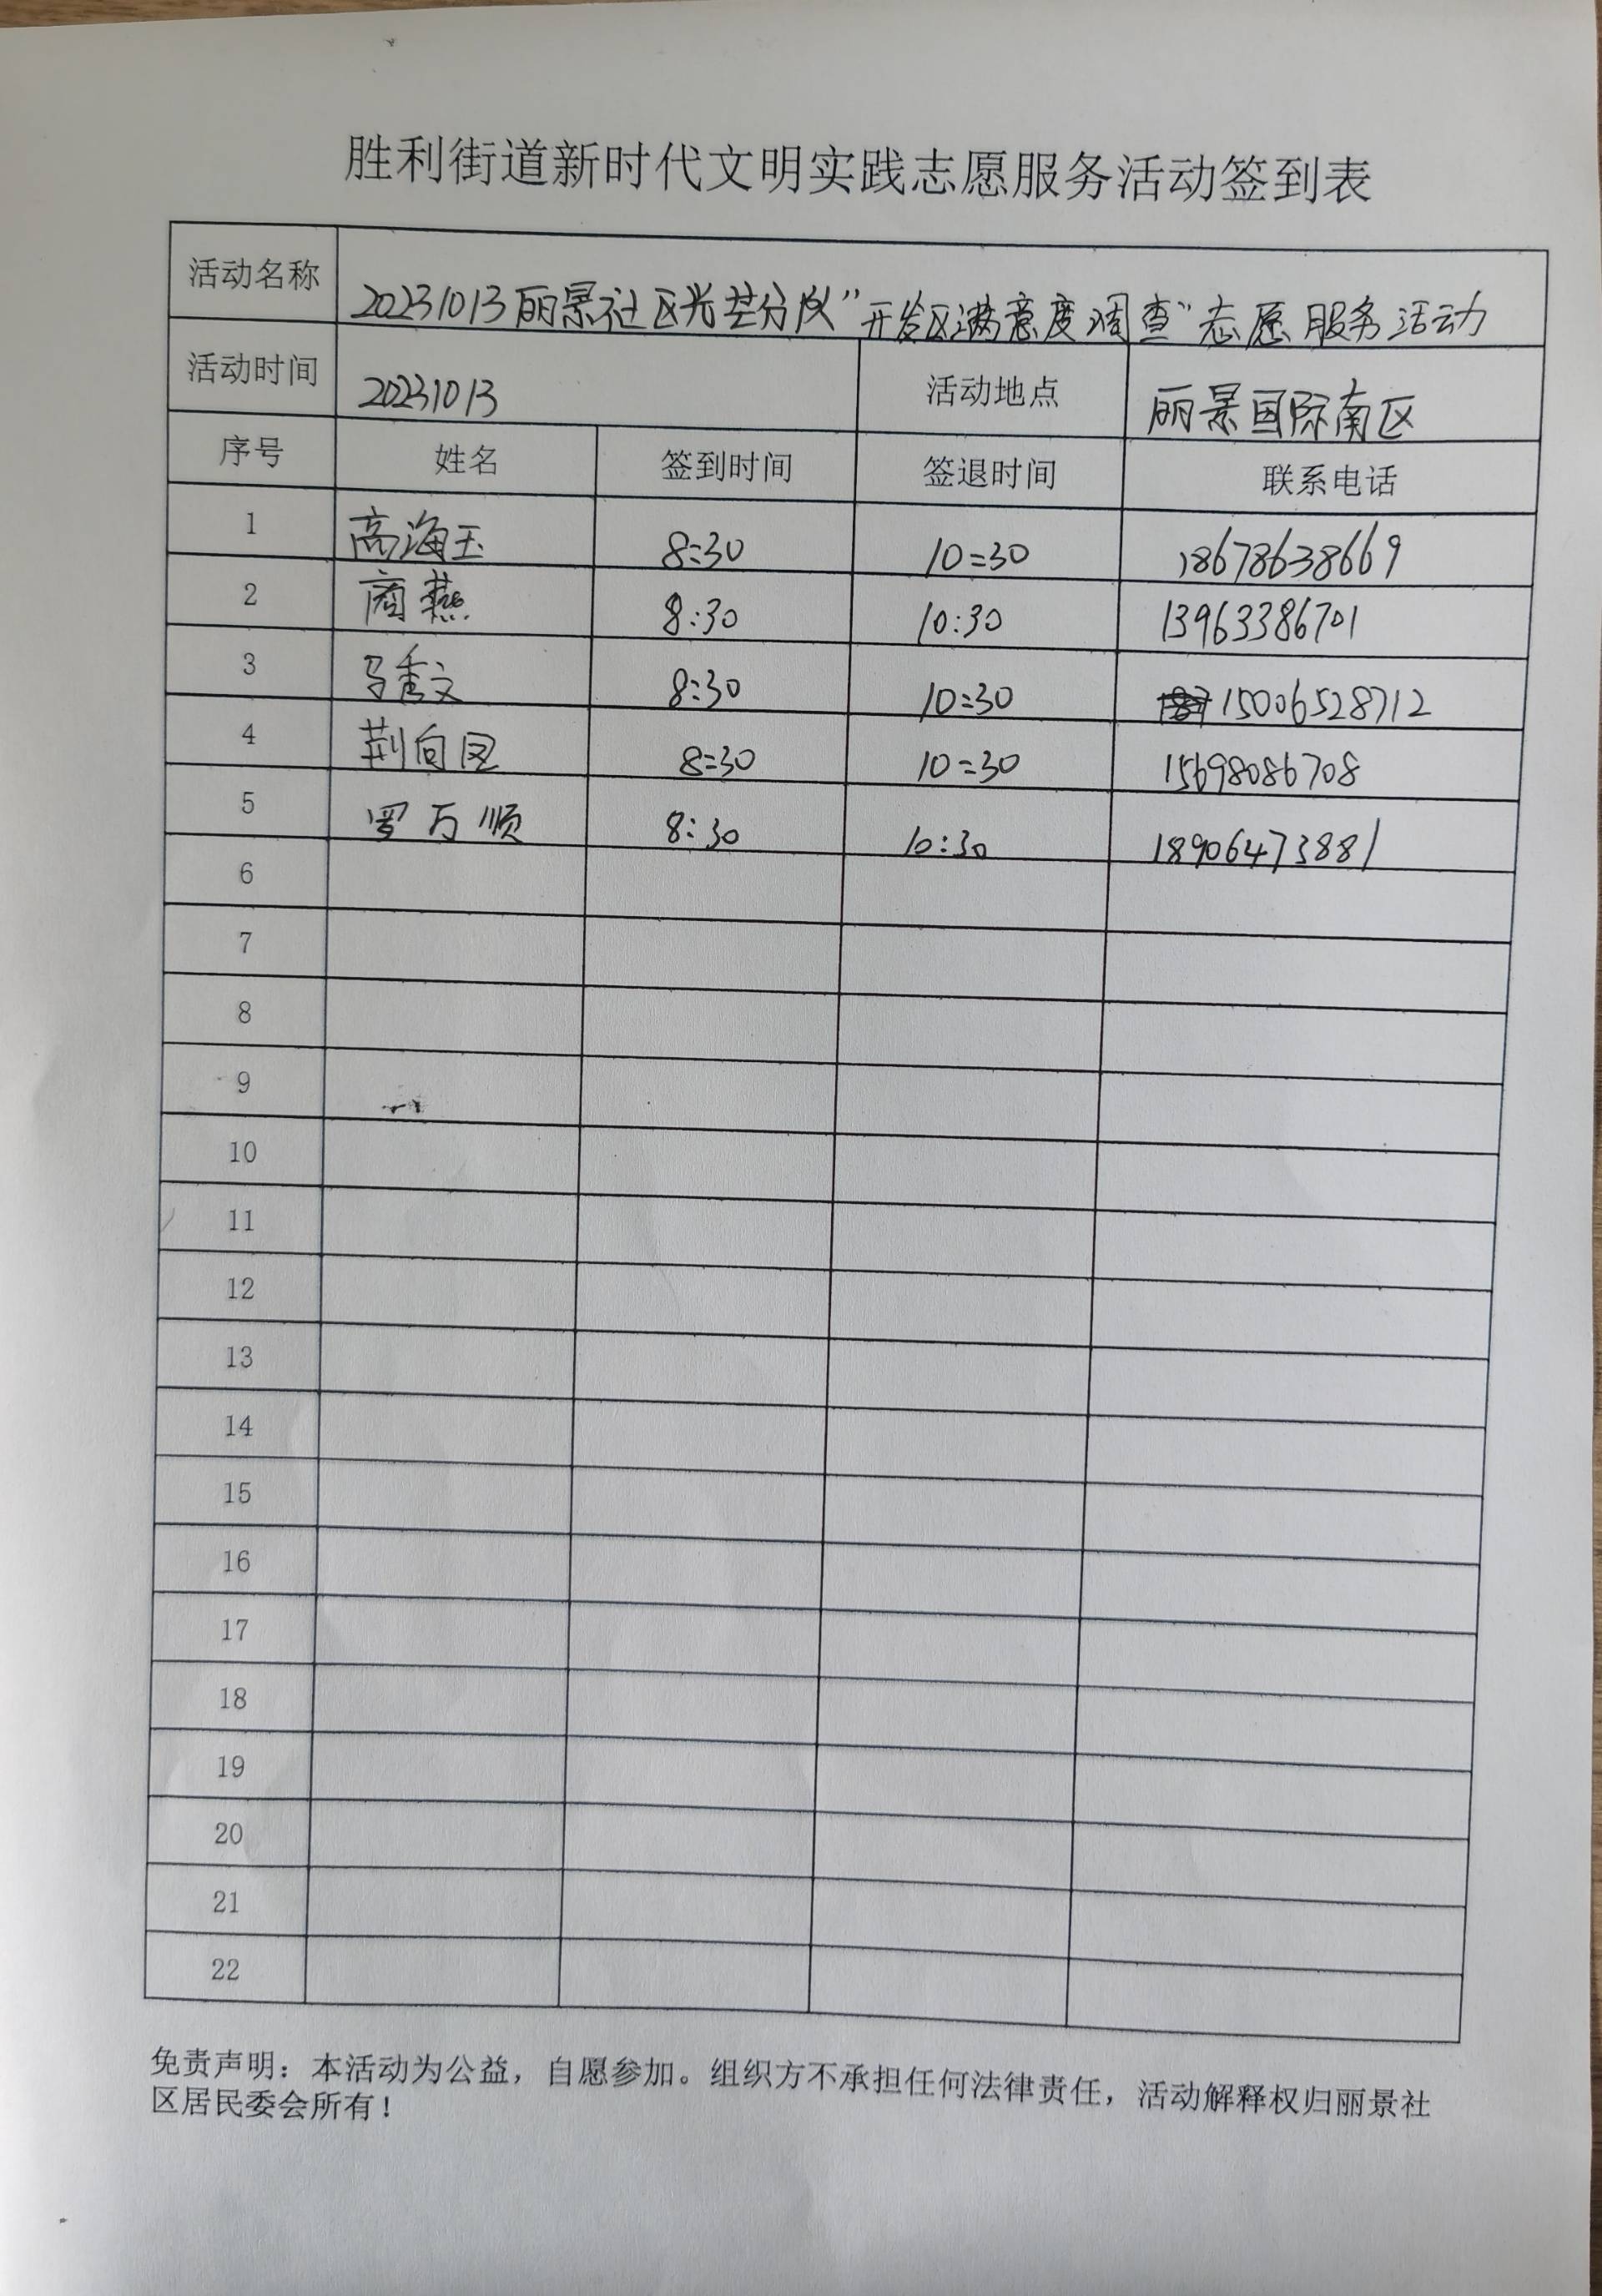 胜利街道新时代文明实践志愿服务活动签到表
活动名称 20231013丽景社区光芒分队"开发区满意度调查"志愿服务活动
活动时间 20231013 活动地点 丽景国际南区
序号 姓名 签到时间 签退时间 联系电话
1 高海玉 8:30 10:30 18678638669
2 商燕 8:30 10:30 13963386701
3 马秀文 8:30 10:30 15006528712
4 荆向凤 8:30 10:30 15698086708
5 罗万顺 8:30 10:30 18906473881
6
7
8
9
10
11
12
13
14
15
16
17
18
19
20
21
22
免责声明：本活动为公益，自愿参加。组织方不承担任何法律责任，活动解释权归丽景社
区居民委会所有！